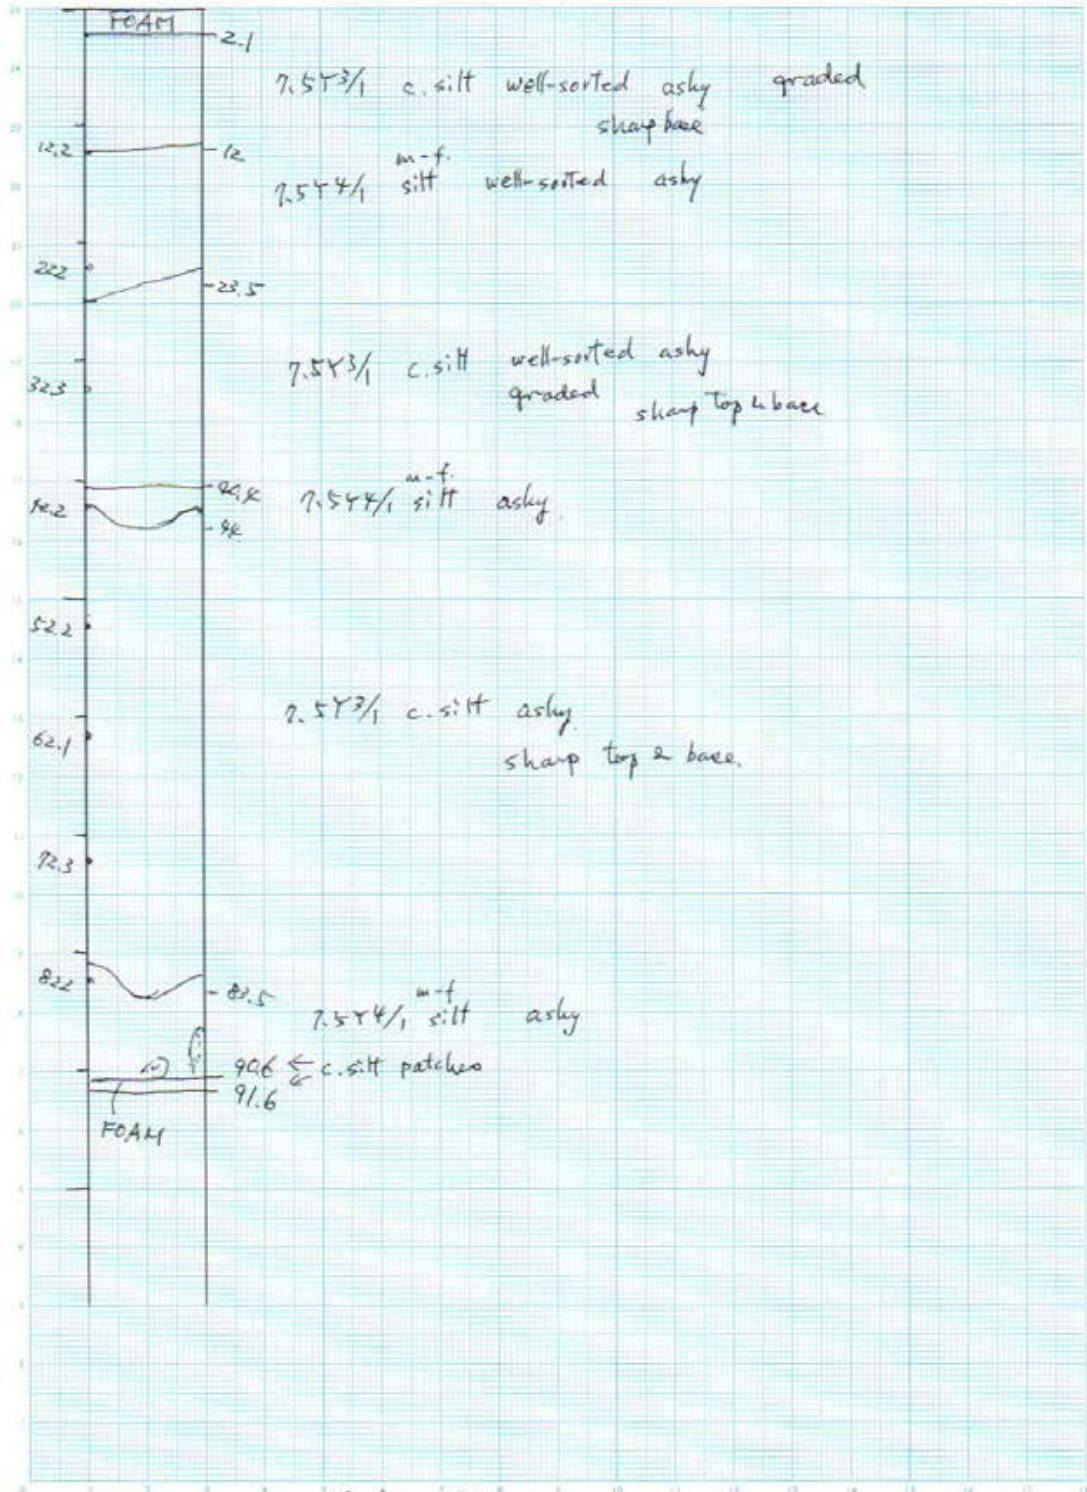 FOAM
2.1
7.5Y3/1 c. silt well-sorted ashy graded
sharp base
12.2
12
m-f.
7.5Y4/1 silt well-sorted ashy
22.2
23.5
7.5Y3/1 c. silt well-sorted ashy
graded sharp top & base
32.3
40.4
m-f.
7.5Y4/1 silt ashy
42.2
44
52.2
7.5Y3/1 c. silt ashy.
62.1
sharp top & base.
72.3
82.2
83.5
m-f
7.5Y4/1 silt ashy
90.6 ← c. silt patches
91.6
FOAM